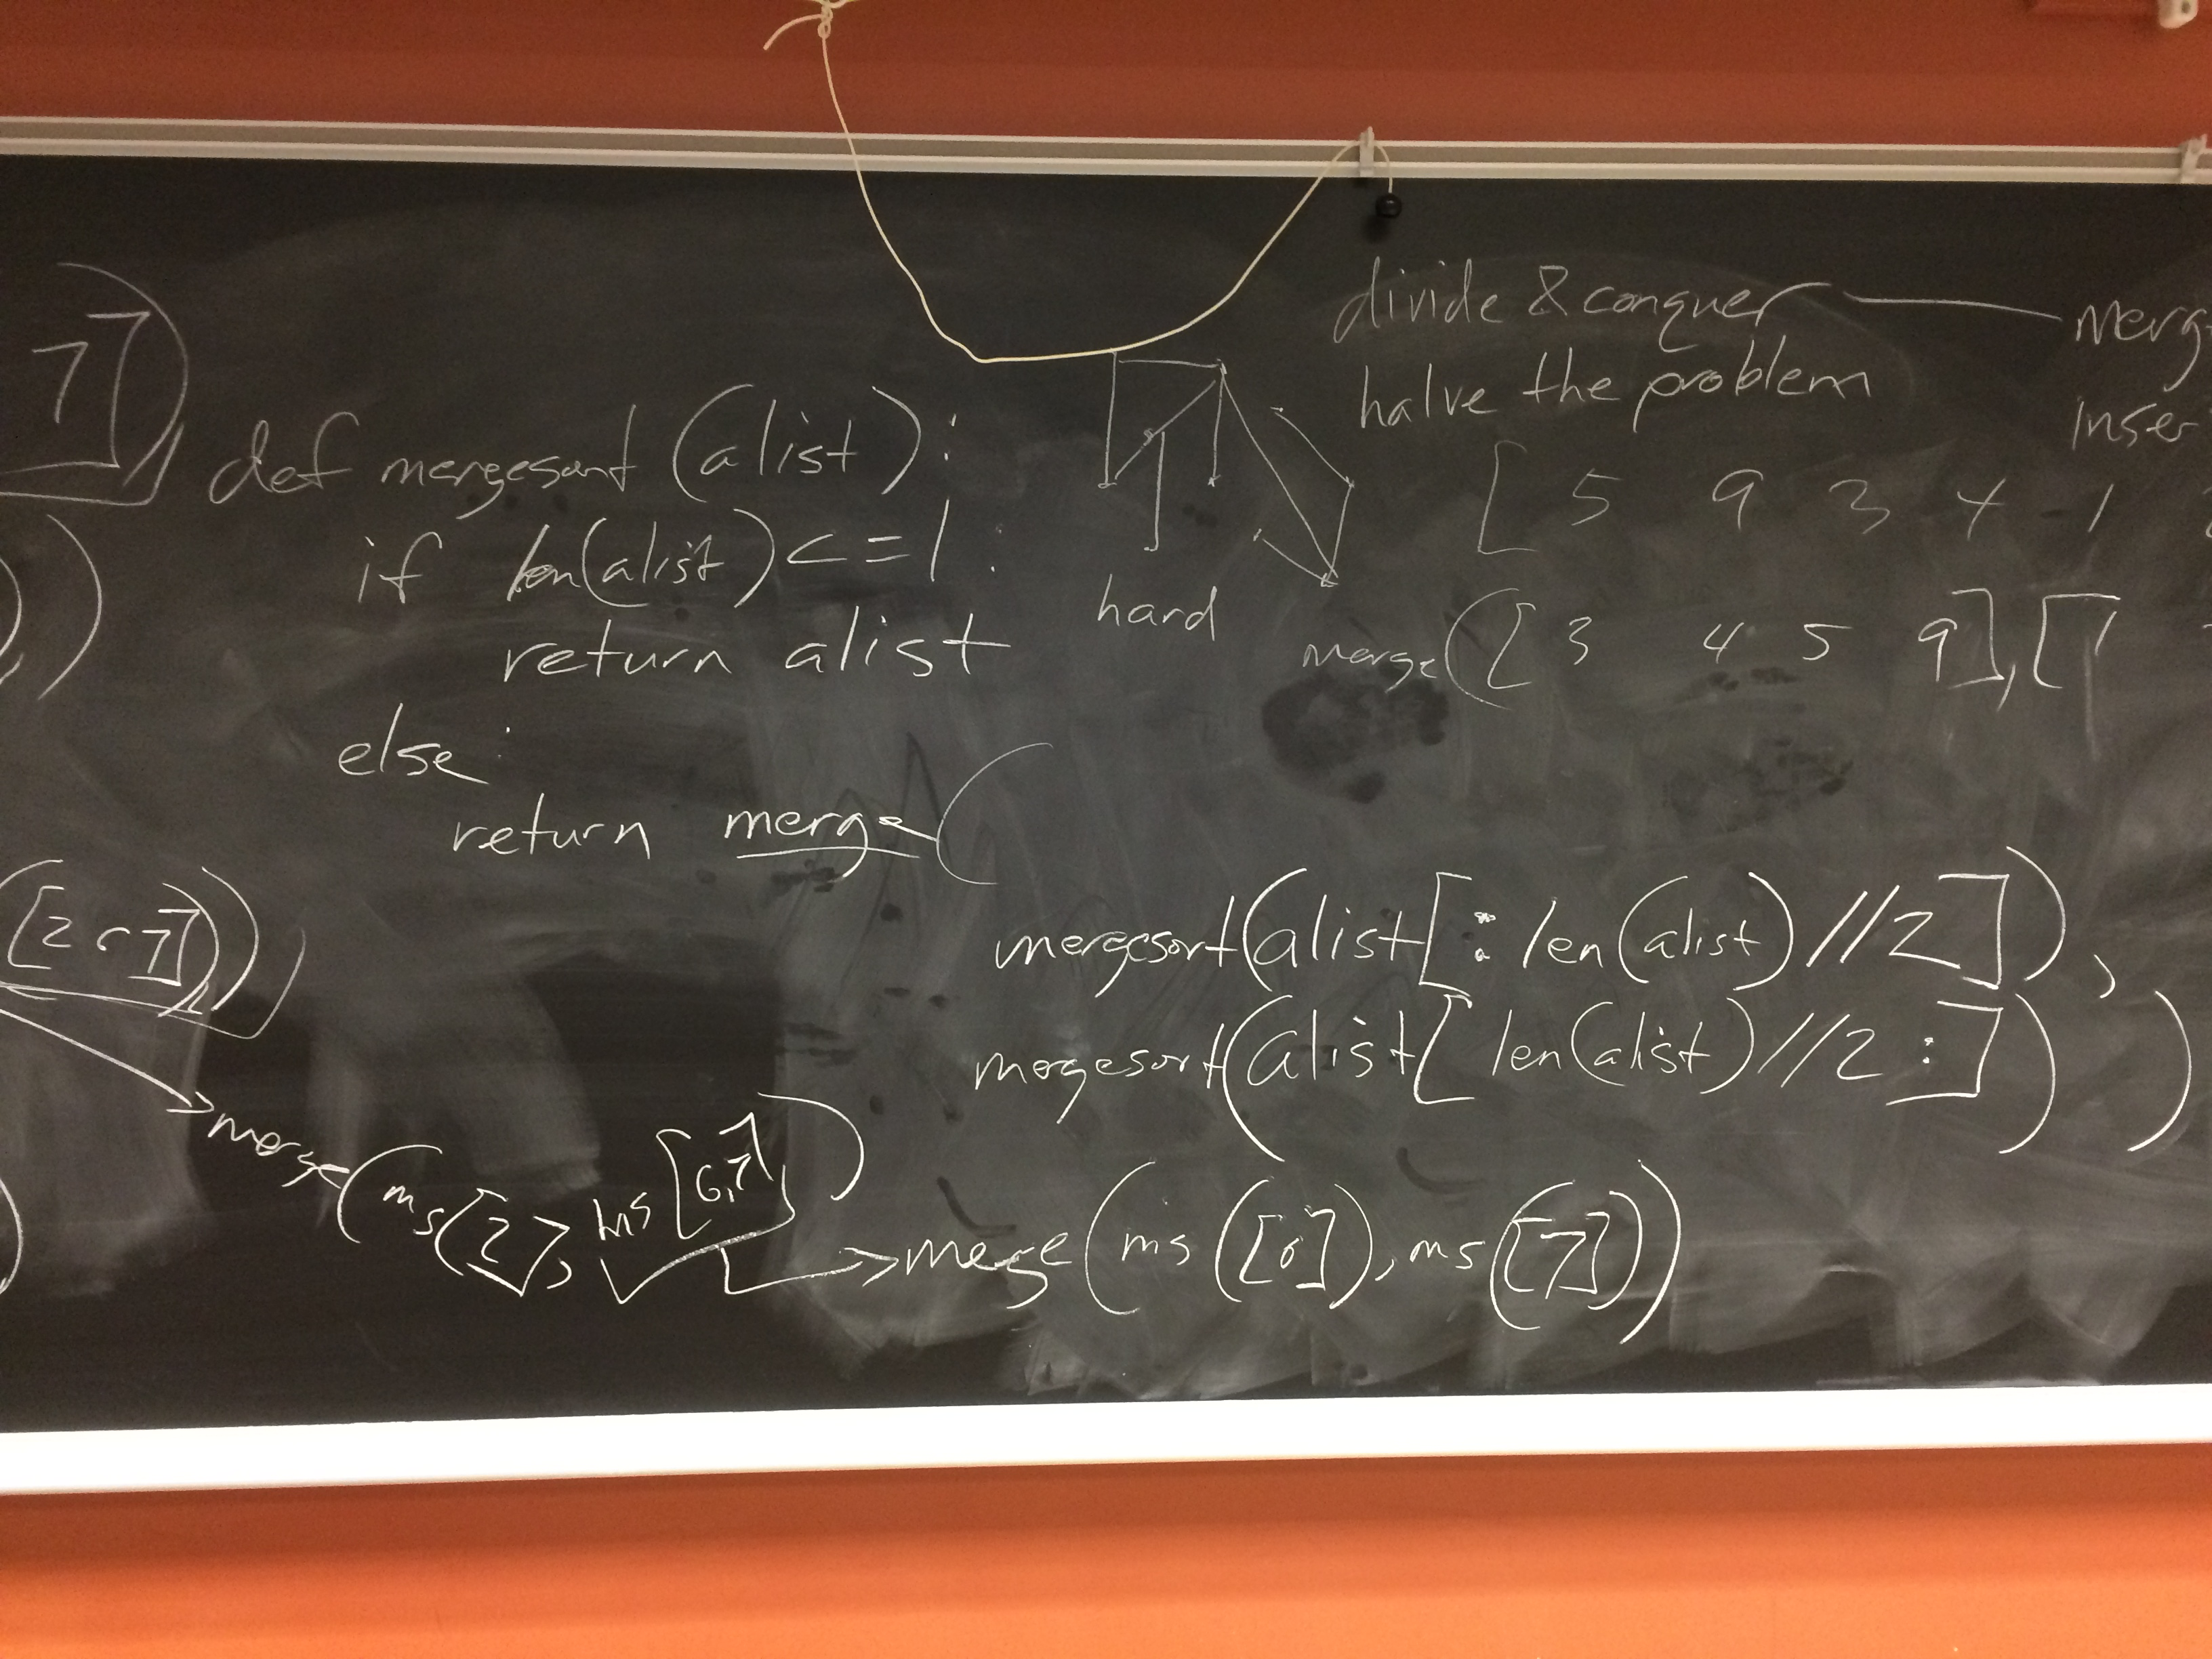 7])
def mergesort (alist):
if len(alist) <= 1 :
return alist
else:
return merge (
mergesort(alist[: len(alist)//2]),
mergesort(alist[len(alist)//2 :]))
hard
divide & conquer
halve the problem
[ 5 9 3 4 1
merge([ 3 4 5 9],[1
([2 6 7]))
merge(ms(2), ms[6,7])
merge(ms([6]), ms([7]))